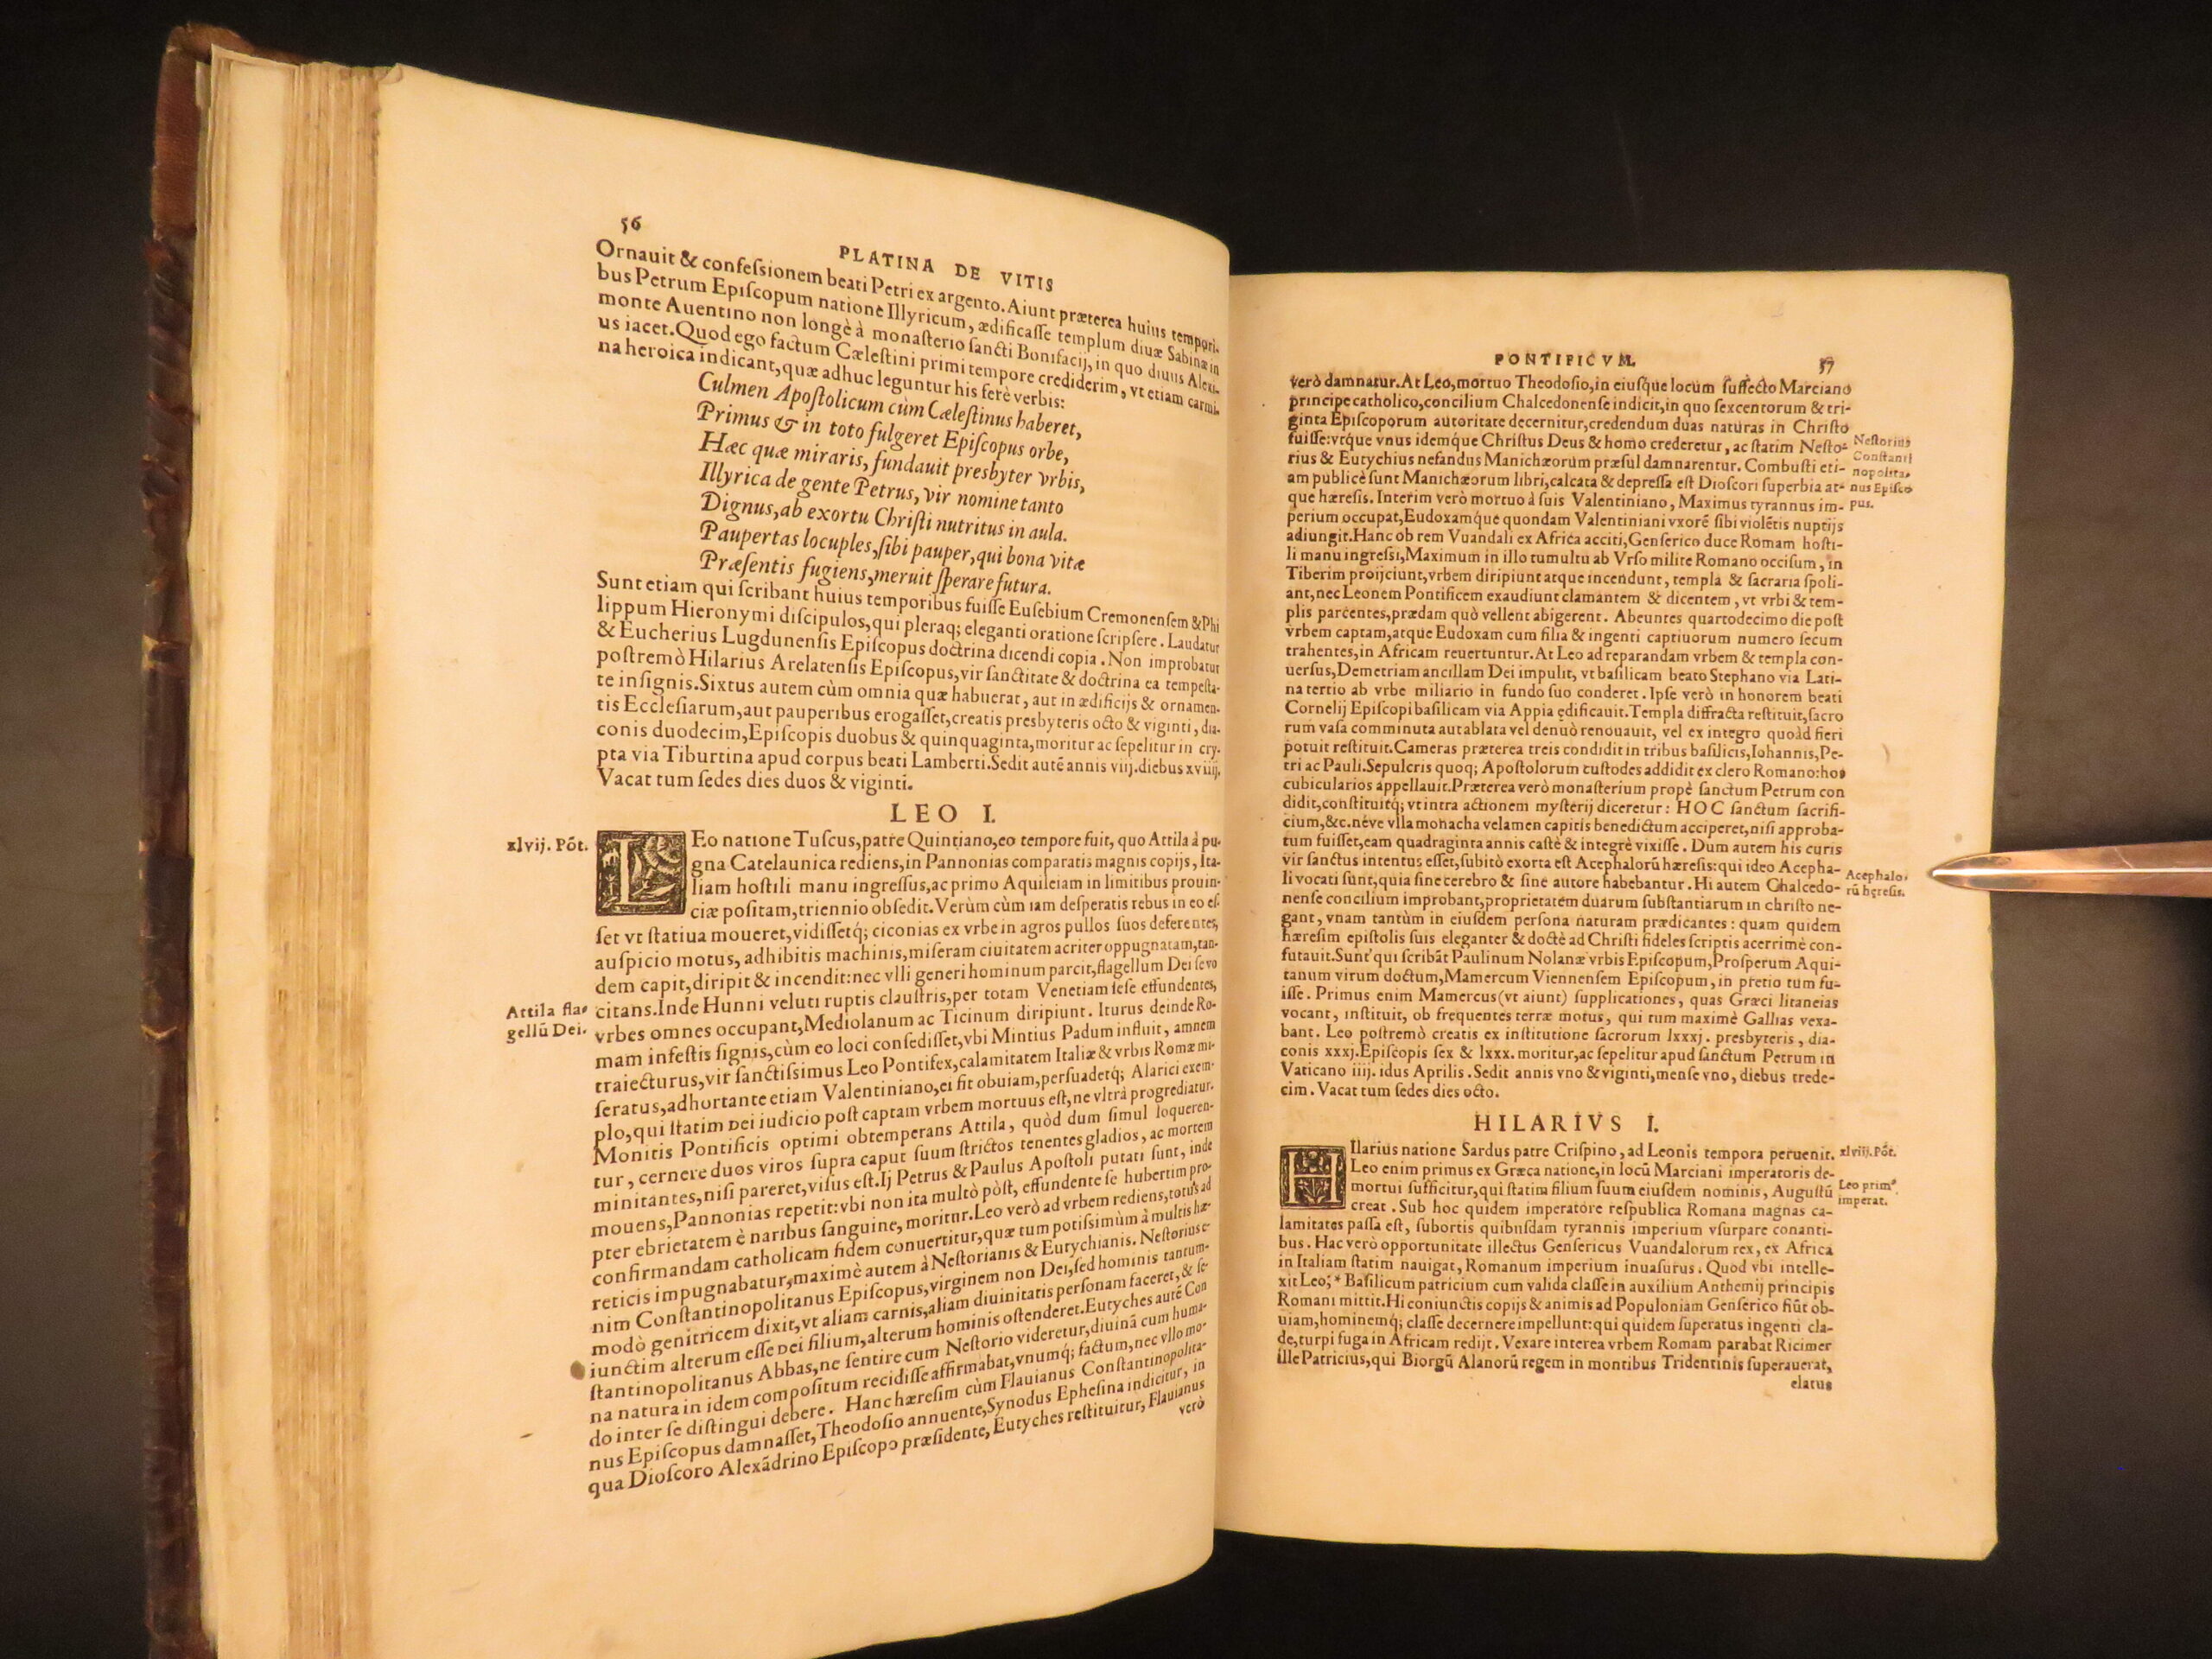 56
PLATINA DE VITIS
Ornauit & confeſsionem beati Petri ex argento. Aiunt præterea huius tempori-
bus Petrum Epiſcopum natione Illyricum, ædificaſſe templum diuæ Sabinæ in
monte Auentino non longè à monaſterio ſancti Bonifacij, in quo diuus Alexi-
us iacet. Quod ego factum Cæleſtini primi tempore crediderim, vt etiam carmi-
na heroica indicant, quæ adhuc leguntur his ferè verbis:
Culmen Apoſtolicum cùm Cæleſtinus haberet,
Primus & in toto fulgeret Epiſcopus orbe,
Hæc quæ miraris, fundauit presbyter vrbis,
Illyrica de gente Petrus, vir nomine tanto
Dignus, ab exortu Chriſti nutritus in aula.
Paupertas locuples, ſibi pauper, qui bona vitæ
Præſentis fugiens, meruit ſperare futura.
Sunt etiam qui ſcribant huius temporibus fuiſſe Euſebium Cremonenſem & Phi
lippum Hieronymi diſcipulos, qui pleraq; eleganti oratione ſcripſere. Laudatur
& Eucherius Lugdunenſis Epiſcopus doctrina dicendi copia. Non improbatur
poſtremò Hilarius Arelatenſis Epiſcopus, vir ſanctitate & doctrina ea tempeſta-
te inſignis. Sixtus autem cùm omnia quæ habuerat, aut in ædificijs & ornamen-
tis Eccleſiarum, aut pauperibus erogaſſet, creatis presbyteris octo & viginti, dia-
conis duodecim, Epiſcopis duobus & quinquaginta, moritur ac ſepelitur in cry-
pta via Tiburtina apud corpus beati Lamberti. Sedit autē annis viij. diebus xviiij.
Vacat tum ſedes dies duos & viginti.
LEO I.
xlvij. Pōt.
LEo natione Tuſcus, patre Quintiano, eo tempore fuit, quo Attila à pu-
gna Catelaunica rediens, in Pannonias comparatis magnis copijs, Ita-
liam hoſtili manu ingreſſus, ac primo Aquileiam in limitibus prouin-
ciæ poſitam, triennio obſedit. Verùm cùm iam deſperatis rebus in eo eſ-
ſet vt ſtatiua moueret, vidiſſetq; ciconias ex vrbe in agros pullos ſuos deferentes,
auſpicio motus, adhibitis machinis, miſeram ciuitatem acriter oppugnatam, tan-
dem capit, diripit & incendit: nec vlli generi hominum parcit, flagellum Dei ſe vo
Attila fla-
gellū Dei.
citans. Inde Hunni veluti ruptis clauſtris, per totam Venetiam ſeſe effundentes,
vrbes omnes occupant, Mediolanum ac Ticinum diripiunt. Iturus deinde Ro-
mam infeſtis ſignis, cùm eo loci conſediſſet, vbi Mintius Padum influit, amnem
traiecturus, vir ſanctiſsimus Leo Pontifex, calamitatem Italiæ & vrbis Romæ mi-
ſeratus, adhortante etiam Valentiniano, ei fit obuiam, perſuadetq; Alarici exem-
plo, qui ſtatim Dei iudicio poſt captam vrbem mortuus eſt, ne vltrà progrediatur.
Monitis Pontificis optimi obtemperans Attila, quòd dum ſimul loqueren-
tur, cernere duos viros ſupra caput ſuum ſtrictos tenentes gladios, ac mortem
minitantes, niſi pareret, viſus eſt. Ij Petrus & Paulus Apoſtoli putati ſunt, inde
mouens, Pannonias repetit: vbi non ita multò pòſt, effundente ſe hubertim pro-
pter ebrietatem è naribus ſanguine, moritur. Leo verò ad vrbem rediens, totus ad
confirmandam catholicam fidem conuertitur, quæ tum potiſsimùm à multis hæ-
reticis impugnabatur, maximè autem à Neſtorianis & Eutychianis. Neſtorius e-
nim Conſtantinopolitanus Epiſcopus, virginem non Dei, ſed hominis tantum-
modò genitricem dixit, vt aliam carnis, aliam diuinitatis perſonam faceret, & ſe-
iunctim alterum eſſe Dei filium, alterum hominis oſtenderet. Eutyches autē Con
ſtantinopolitanus Abbas, ne ſentire cum Neſtorio videretur, diuinā cum huma-
na natura in idem compoſitum recidiſſe affirmabat, vnumq; factum, nec vllo mo-
do inter ſe diſtingui debere. Hanc hæreſim cùm Flauianus Conſtantinopolita-
nus Epiſcopus damnaſſet, Theodoſio annuente, Synodus Epheſina indicitur, in
qua Dioſcoro Alexādrino Epiſcopo præſidente, Eutyches reſtituitur, Flauianus
verò
PONTIFICVM.
57
verò damnatur. At Leo, mortuo Theodoſio, in eiuſque locum ſuffecto Marciano
principe catholico, concilium Chalcedonenſe indicit, in quo ſexcentorum & tri-
ginta Epiſcoporum autoritate decernitur, credendum duas naturas in Chriſto
fuiſſe: vtque vnus idemque Chriſtus Deus & homo crederetur, ac ſtatim Neſto-
rius & Eutychius nefandus Manichæorum præſul damnarentur. Combuſti eti-
am publicè ſunt Manichæorum libri, calcata & depreſſa eſt Dioſcori ſuperbia at-
que hæreſis. Interim verò mortuo à ſuis Valentiniano, Maximus tyrannus im-
Neſtorius
Conſtanti
nopolita-
nus Epiſco
pus.
perium occupat, Eudoxamque quondam Valentiniani vxorē ſibi violētis nuptijs
adiungit. Hanc ob rem Vuandali ex Africa acciti, Genſerico duce Romam hoſti-
li manu ingreſsi, Maximum in illo tumultu ab Vrſo milite Romano occiſum, in
Tiberim proijciunt, vrbem diripiunt atque incendunt, templa & ſacraria ſpoli-
ant, nec Leonem Pontificem exaudiunt clamantem & dicentem, vt vrbi & tem-
plis parcentes, prædam quò vellent abigerent. Abeuntes quartodecimo die poſt
vrbem captam, atque Eudoxam cum filia & ingenti captiuorum numero ſecum
trahentes, in Africam reuertuntur. At Leo ad reparandam vrbem & templa con-
uerſus, Demetriam ancillam Dei impulit, vt baſilicam beato Stephano via Lati-
na tertio ab vrbe miliario in fundo ſuo conderet. Ipſe verò in honorem beati
Cornelij Epiſcopi baſilicam via Appia ędificauit. Templa diffracta reſtituit, ſacro
rum vaſa comminuta aut ablata vel denuò renouauit, vel ex integro quoàd fieri
potuit reſtituit. Cameras præterea treis condidit in tribus baſilicis, Iohannis, Pe-
tri ac Pauli. Sepulcris quoq; Apoſtolorum cuſtodes addidit ex clero Romano: hos
cubicularios appellauit. Præterea verò monaſterium propè ſanctum Petrum con
didit, conſtituitq; vt intra actionem myſterij diceretur: HOC ſanctum ſacrifi-
cium, &c. néve vlla monacha velamen capitis benedictum acciperet, niſi approba-
tum fuiſſet, eam quadraginta annis caſtè & integrè vixiſſe. Dum autem his curis
vir ſanctus intentus eſſet, ſubitò exorta eſt Acephalorū hæreſis: qui ideo Acepha-
li vocati ſunt, quia ſine cerebro & ſine autore habebantur. Hi autem Chalcedo-
Acephalo-
rū hęreſis.
nenſe concilium improbant, proprietatem duarum ſubſtantiarum in chriſto ne-
gant, vnam tantùm in eiuſdem perſona naturam prædicantes: quam quidem
hæreſim epiſtolis ſuis eleganter & doctè ad Chriſti fideles ſcriptis acerrimè con-
futauit. Sunt qui ſcribāt Paulinum Nolanæ vrbis Epiſcopum, Proſperum Aqui-
tanum virum doctum, Mamercum Viennenſem Epiſcopum, in pretio tum fu-
iſſe. Primus enim Mamercus (vt aiunt) ſupplicationes, quas Græci litaneias
vocant, inſtituit, ob frequentes terræ motus, qui tum maximè Gallias vexa-
bant. Leo poſtremò creatis ex inſtitutione ſacrorum lxxxj. presbyteris, dia-
conis xxxj. Epiſcopis ſex & lxxx. moritur, ac ſepelitur apud ſanctum Petrum in
Vaticano iiij. idus Aprilis. Sedit annis vno & viginti, menſe vno, diebus trede-
cim. Vacat tum ſedes dies octo.
HILARIVS I.
HIlarius natione Sardus patre Criſpino, ad Leonis tempora peruenit.
xlviij. Pōt.
Leo enim primus ex Græca natione, in locū Marciani imperatoris de-
mortui ſufficitur, qui ſtatim filium ſuum eiuſdem nominis, Auguſtū
creat. Sub hoc quidem imperatore reſpublica Romana magnas ca-
Leo prim9
imperat.
lamitates paſſa eſt, ſubortis quibuſdam tyrannis imperium vſurpare conanti-
bus. Hac verò opportunitate illectus Genſericus Vuandalorum rex, ex Africa
in Italiam ſtatim nauigat, Romanum imperium inuaſurus. Quod vbi intelle-
xit Leo, * Baſilicum patricium cum valida claſſe in auxilium Anthemij principis
Romani mittit. Hi coniunctis copijs & animis ad Populoniam Genſerico fiūt ob-
uiam, hominemq; claſſe decernere impellunt: qui quidem ſuperatus ingenti cla-
de, turpi fuga in Africam redijt. Vexare interea vrbem Romam parabat Ricimer
ille Patricius, qui Biorgū Alanorū regem in montibus Tridentinis ſuperauerat,
elatus